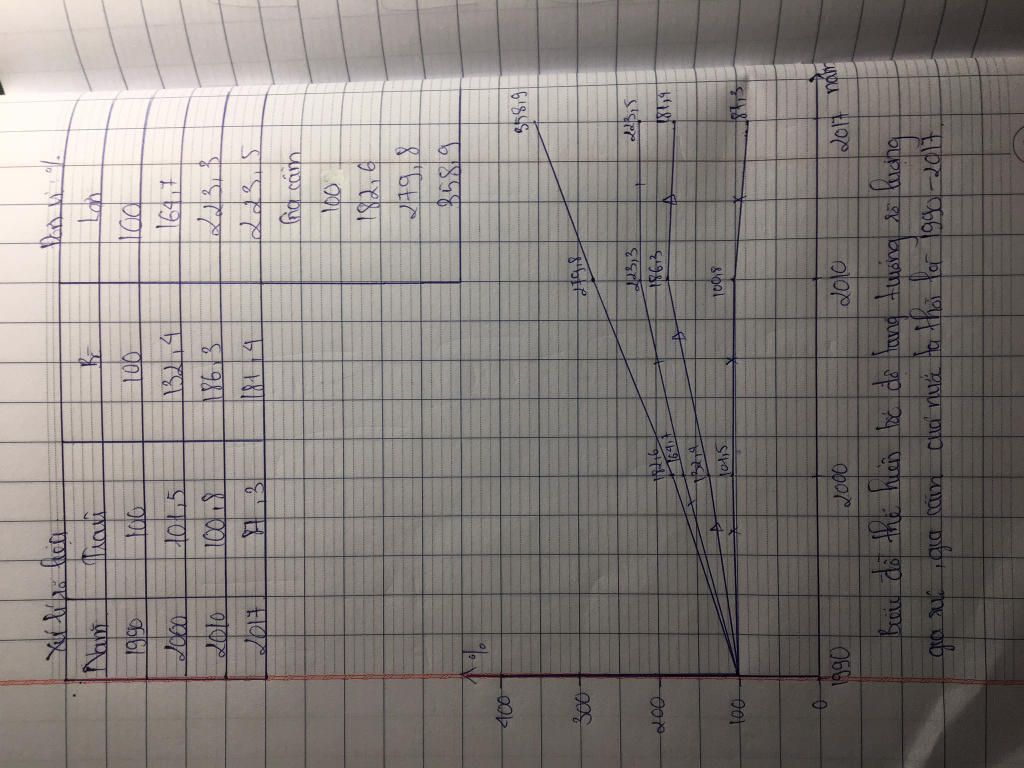 Xử lí số liệu
Đơn vị: %
Năm Trâu Bò Lợn
1990 100 100 100
2000 101,5 132,4 164,7
2010 100,8 186,3 223,3
2017 87,3 181,4 223,5
Gia cầm
100
182,6
279,8
358,9
%
400
300
200
100
0
358,9
279,8
223,3
223,5
186,3
181,4
182,6
164,7
132,4
101,5
100,8
87,3
1990 2000 2010 2017 năm
Biểu đồ thể hiện tốc độ tăng trưởng số lượng
gia súc, gia cầm của nước ta thời kì 1990-2017.